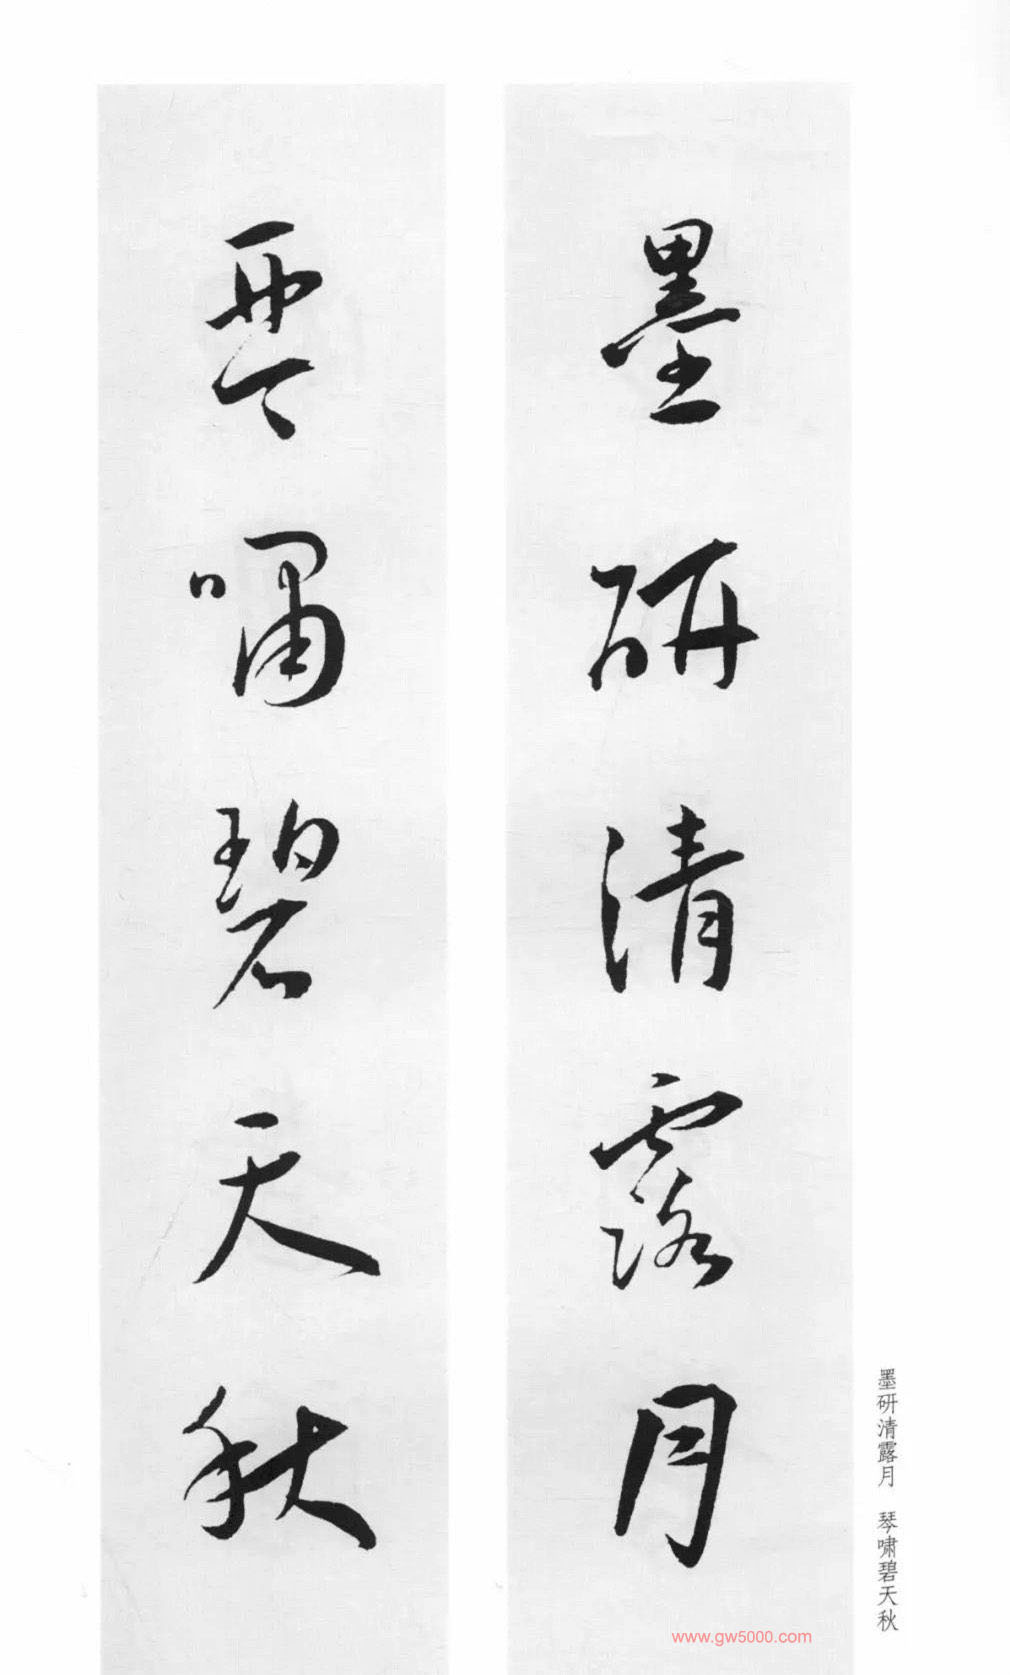 墨研清露月
琴啸碧天秋
墨研清露月 琴啸碧天秋
www.gw5000.com